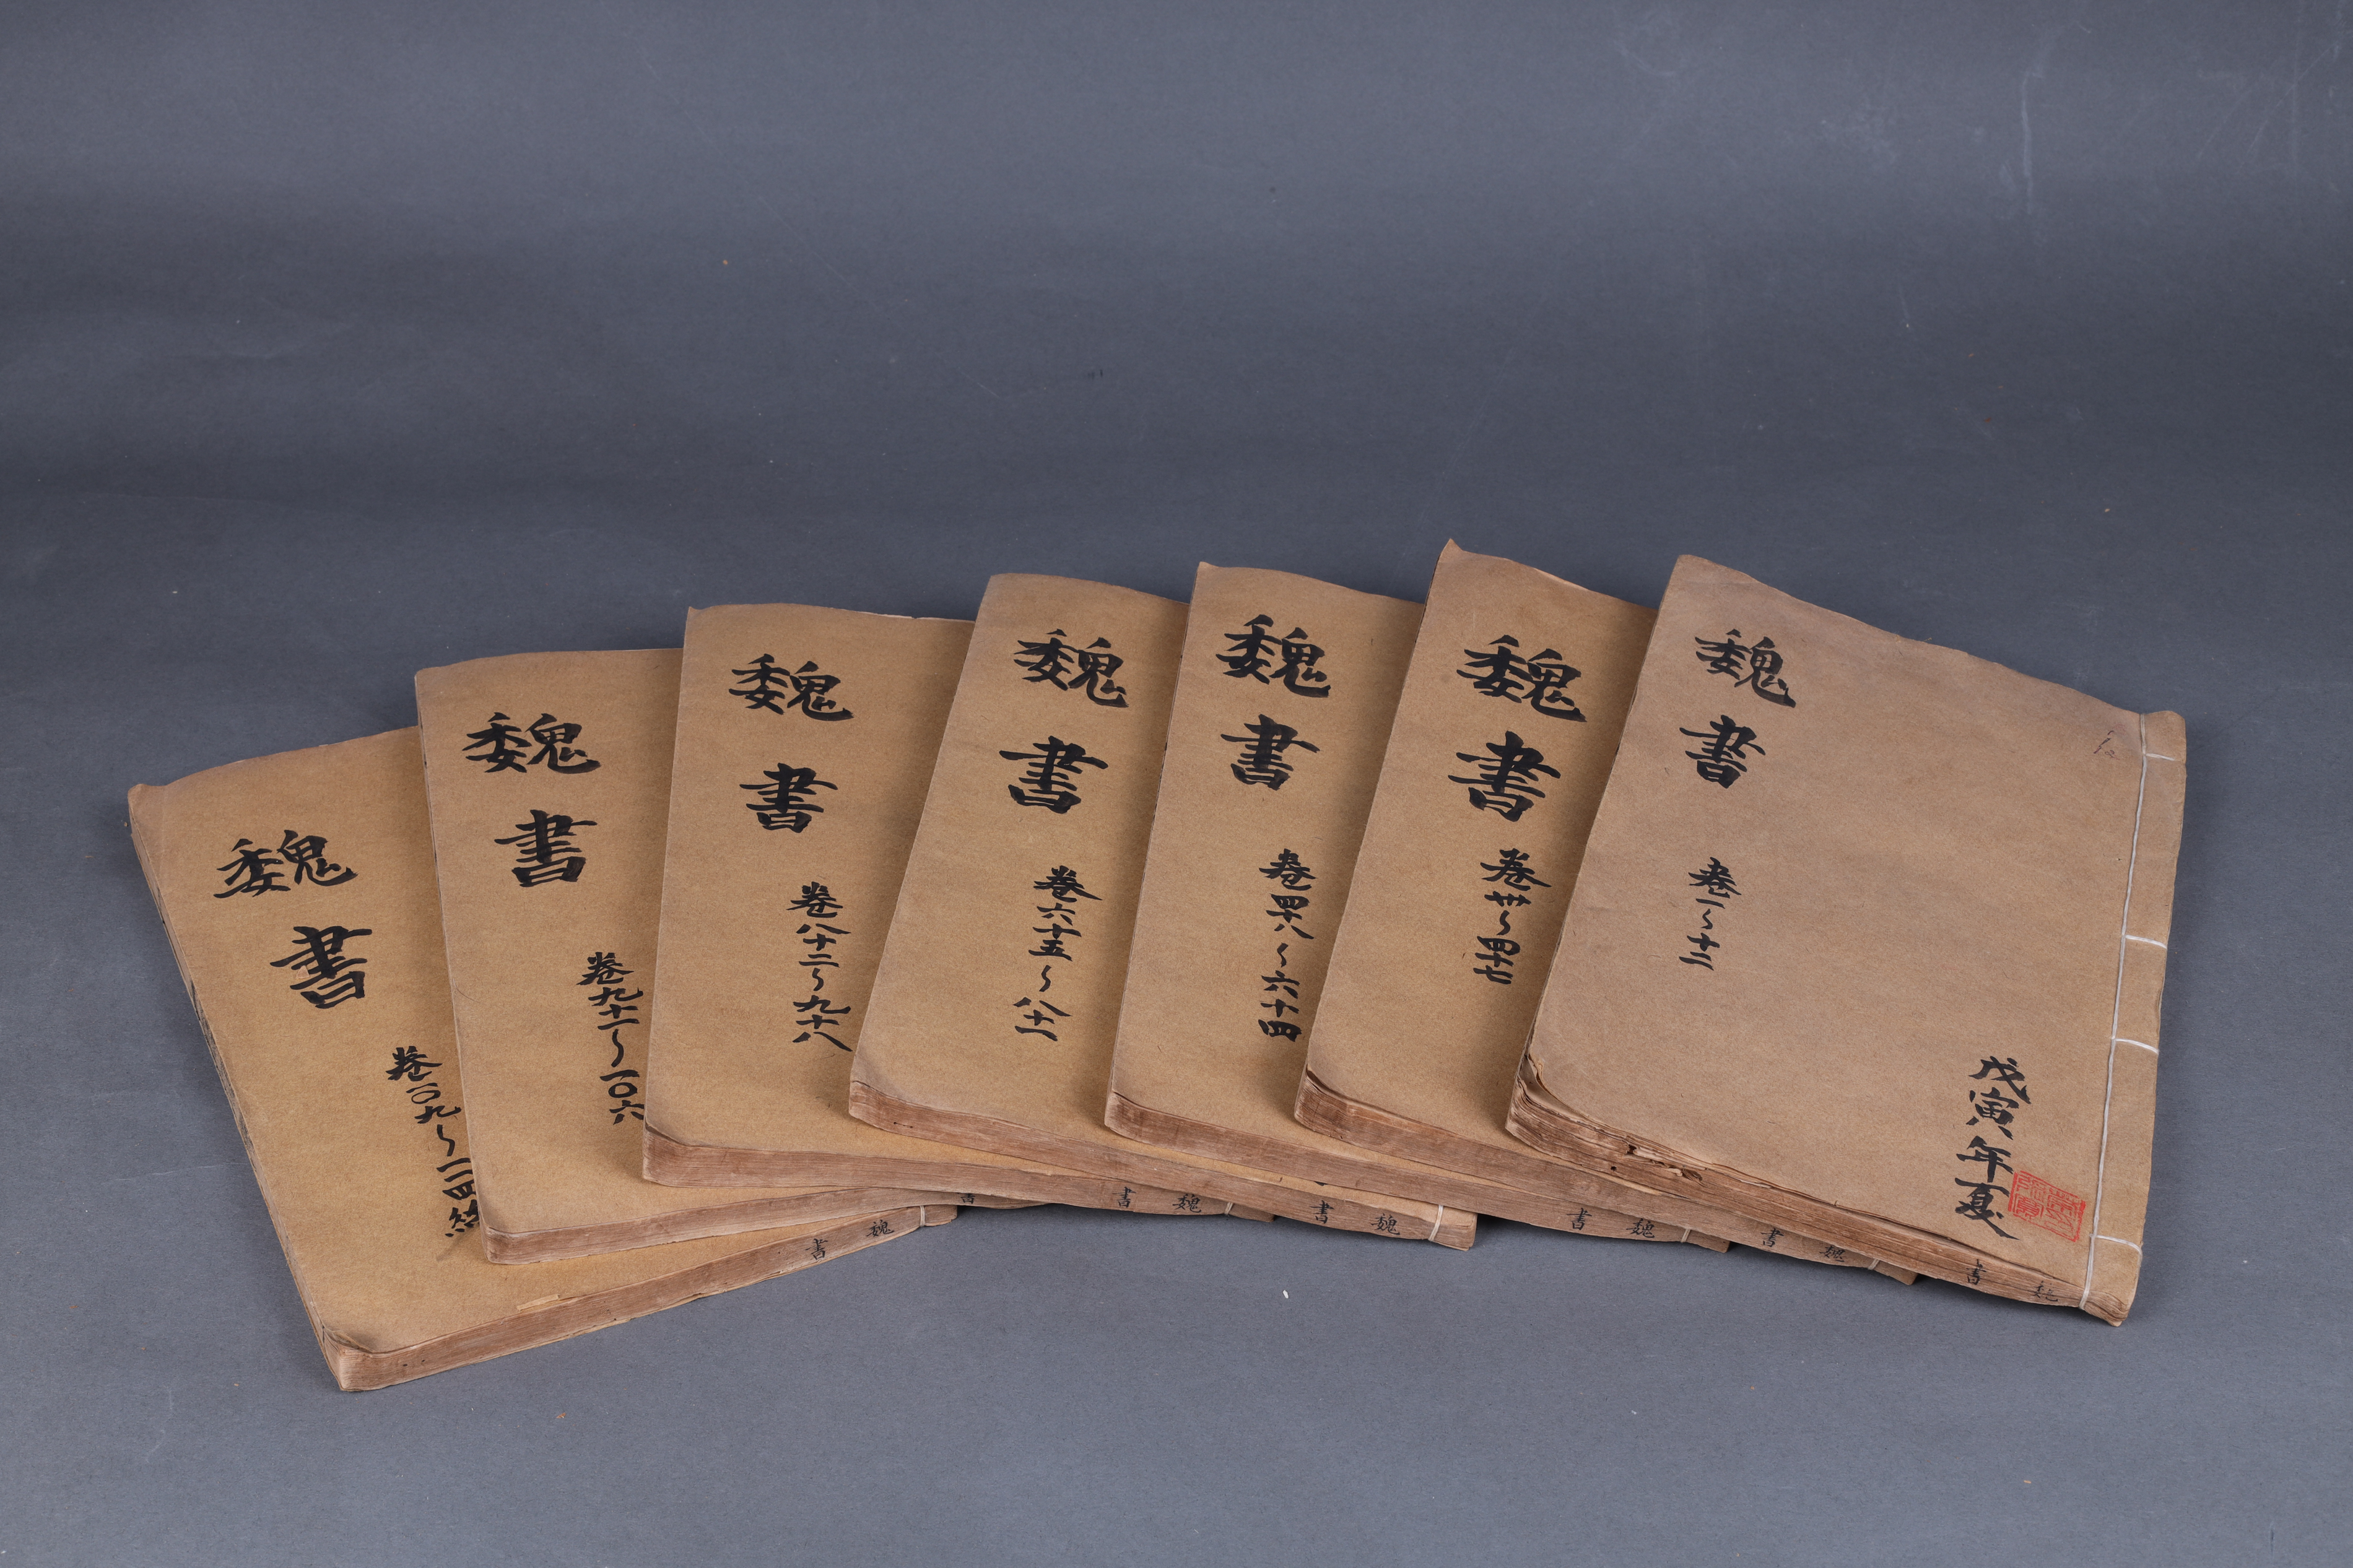 魏書
卷一〜十三
戊寅年夏
魏書
卷卅〜四十七
魏書
卷四十八〜六十四
魏書
卷六十五〜八十一
魏書
卷八十二〜九十八
魏書
卷九十一〜一〇六
魏書
卷一〇九〜一一四終
魏書
魏書
魏書
魏書
魏書
書
魏書